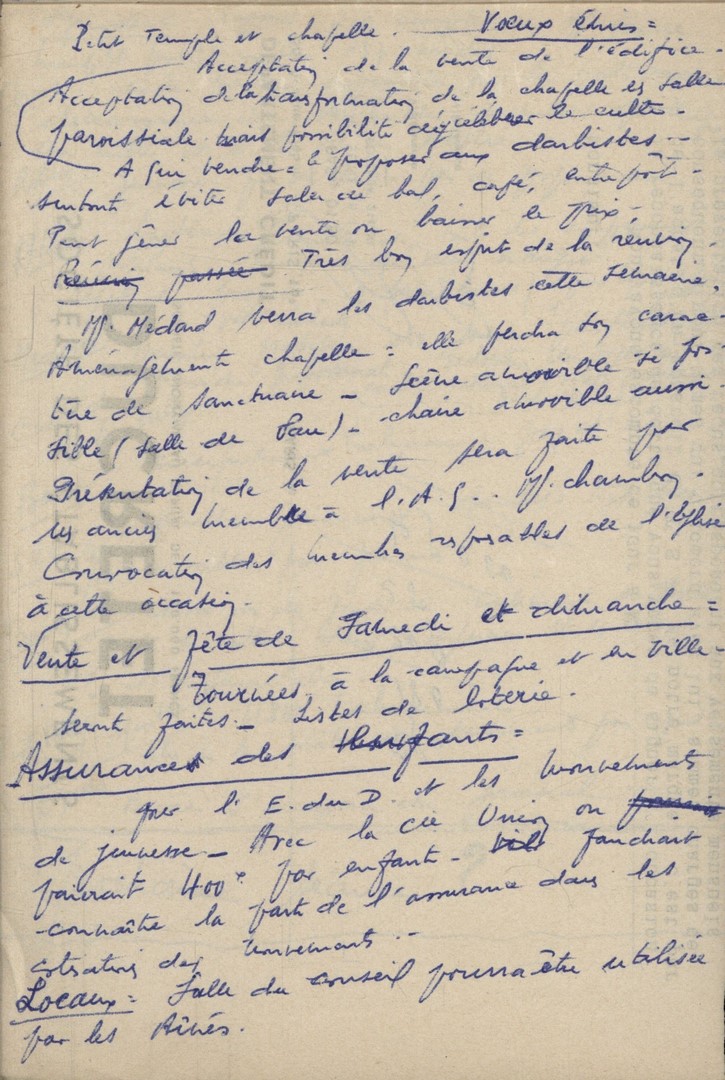 Petit Temple et chapelle. — Vœux émis =
Acceptation de la vente de l'édifice -
Acceptation de la transformation de la chapelle en salle
paroissiale mais possibilité d'y célébrer le culte -
A qui vendre = le proposer aux darbistes --
surtout éviter salle de bal, café, entrepôt -
Peut gêner la vente ou baisser le prix.
Réunion passée Très bon esprit de la réunion.
M. Médard verra les darbistes cette semaine.
Aménagements chapelle = elle perdra son carac-
tère de sanctuaire - Scène amovible si pos-
sible (salle de Pau) - chaire amovible aussi -
Présentation de la vente sera faite par
les anciens membres à l'A.G.. M. Chambon.
Convocation des membres responsables de l'Eglise
à cette occasion.
Vente et fête de Samedi et dimanche =
Tournées à la campagne et en ville -
seront faites - Listes de loterie.
Assurances des enfants =
par l'E. du D. et les mouvements
de jeunesse - Avec la Cie Union on
paierait 400 par enfants - faudrait
connaître la part de l'assurance dans les
cotisations des mouvements --
Locaux = Salle du conseil pourra être utilisée
par les Aînés.